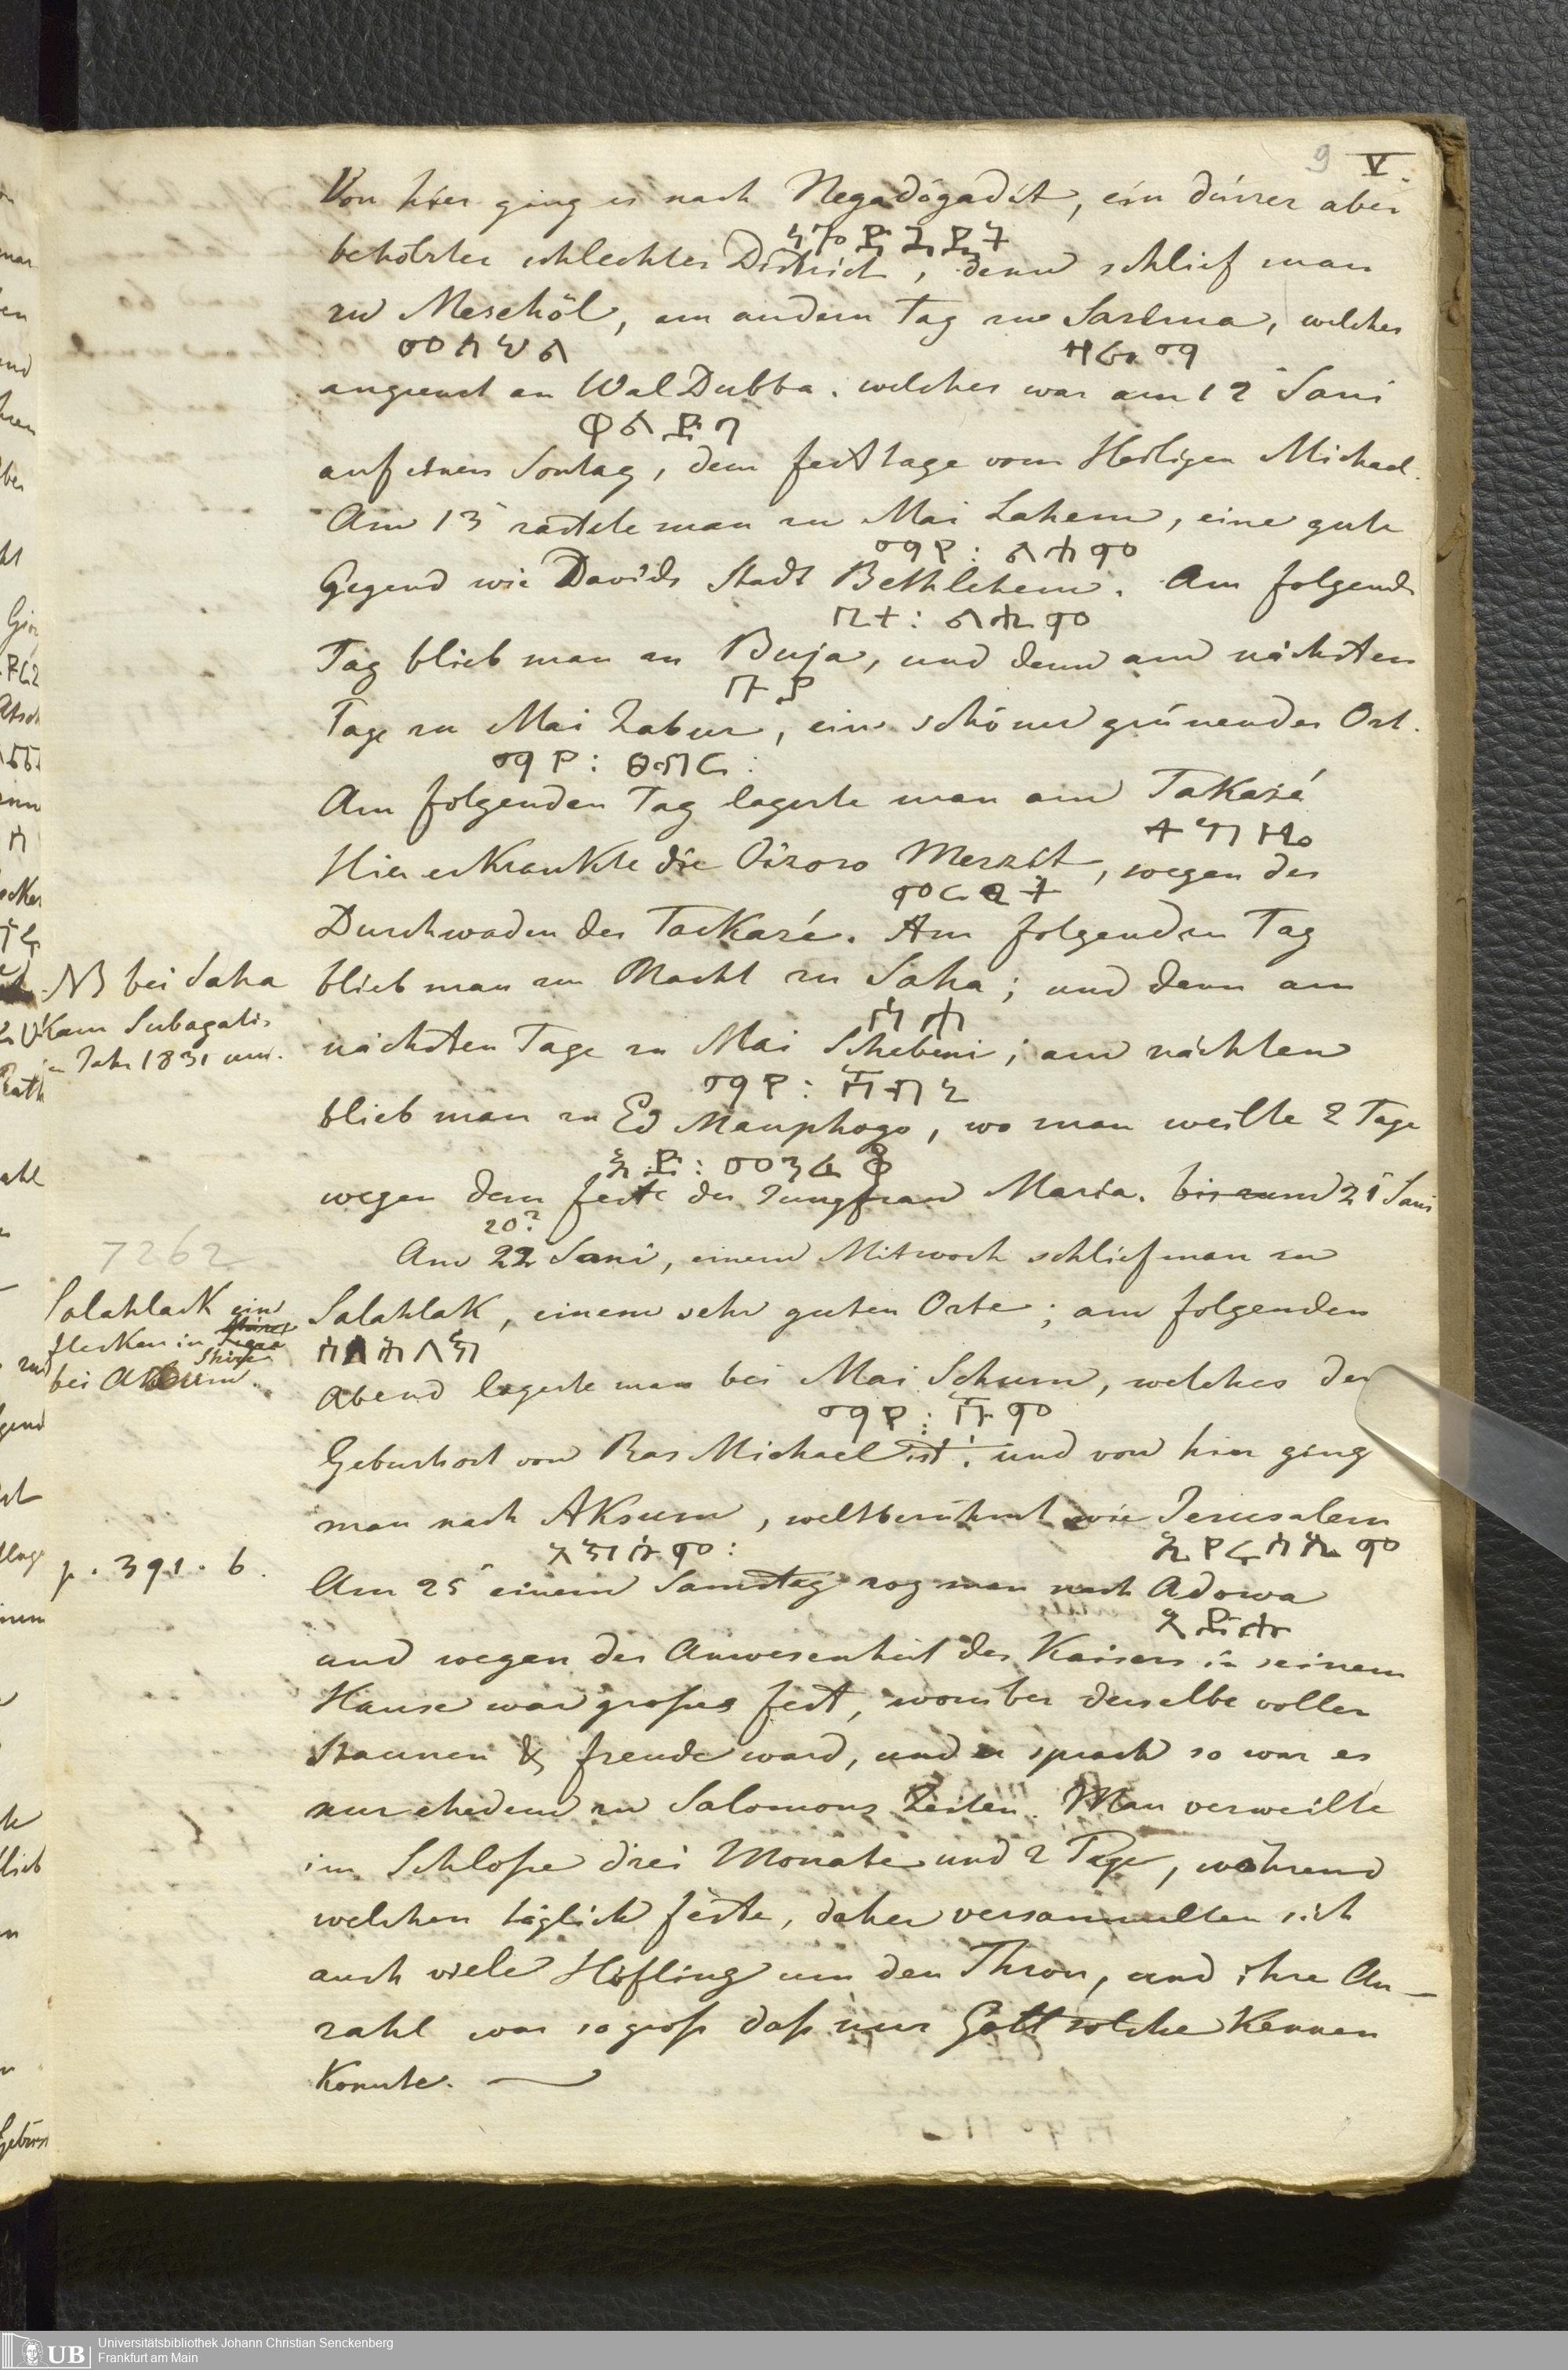 9 V.
Von hier ging es nach Negadögadit, ein dürrer aber
ነጐድጓድት
beholzter schlechter District, denn schlief man
zu Meschöl, am andern Tag zu Sarema, welches
መስሁል ዛሬማ
angrenzt an Wal Dubba. welches war am 12ͭ Sani
ዋልድባ
auf einen Sontag, dem festtage vom Heiligen Michael.
Am 13ͭ rastete man zu Mai Lahem, eine gute
ማይ፡ ልሐም
Gegend wie Davids Stadt Bethlehem. Am folgends
ቤተ፡ ልሔም
Tag blieb man an Buja, und denn am nächsten
ቡያ
Tage zu Mai Zabur, ein schöner grünender Ort.
ማይ፡ ፀብር፡
Am folgenden Tag lagerte man am Takasé
ተከዜ
Hier erkrankte die Oizoro Merzit, wegen des
ምርጺት
Durchwaden des Tackasé. Am folgenden Tag
blieb man zu Nacht zu Saha; und denn am
ሳሐ
NB bei Saha
kam Subagadis
im Jahr 1831 um.
nächsten Tage zu Mai Schebeni; am nächsten
ማይ፡ ሽብኒ
blieb man zu Ed Manphogo, wo man weilte 2 Tage
እድ፡ መንፈቆ
wegen dem feste der Jungfrau Maria. bis zum 21ͭ Sani
20?
Am 22 Sani, einem Mitwoch schlief man zu
7262
Salahlak, einem sehr guten Orte; am folgenden
ሰለሕለካ
Salahlack ein
flecken in Shire
bei Aksum.
Abend lagerte man bei Mai Schum, welches der
ማይ፡ ሹም
Geburtsort von Ras Michael ist. und von hier ging
man nach Aksum, weltberühmt wie Jerusalem
አክሱም፡ ኢየሩሳሌም
p. 391. b.
Am 25ͭ einem Samstag zog man nach Adowa
አድዋ
und wegen der Anwesenheit des Kaisers in seinem
Hause war großes fest, worüber derselbe voller
Staunen & freude ward, und er sprach so war es
nur ehedem zu Salomons Zeiten. Man verweilte
im Schloße drei Monate und 2 Tage, während
welchen täglich feste, daher versammelten sich
auch viele Höfling um den Thron, und ihre An-
zahl war so groß daß nur Gott solche kennen
konnte.
UB Universitätsbibliothek Johann Christian Senckenberg
Frankfurt am Main